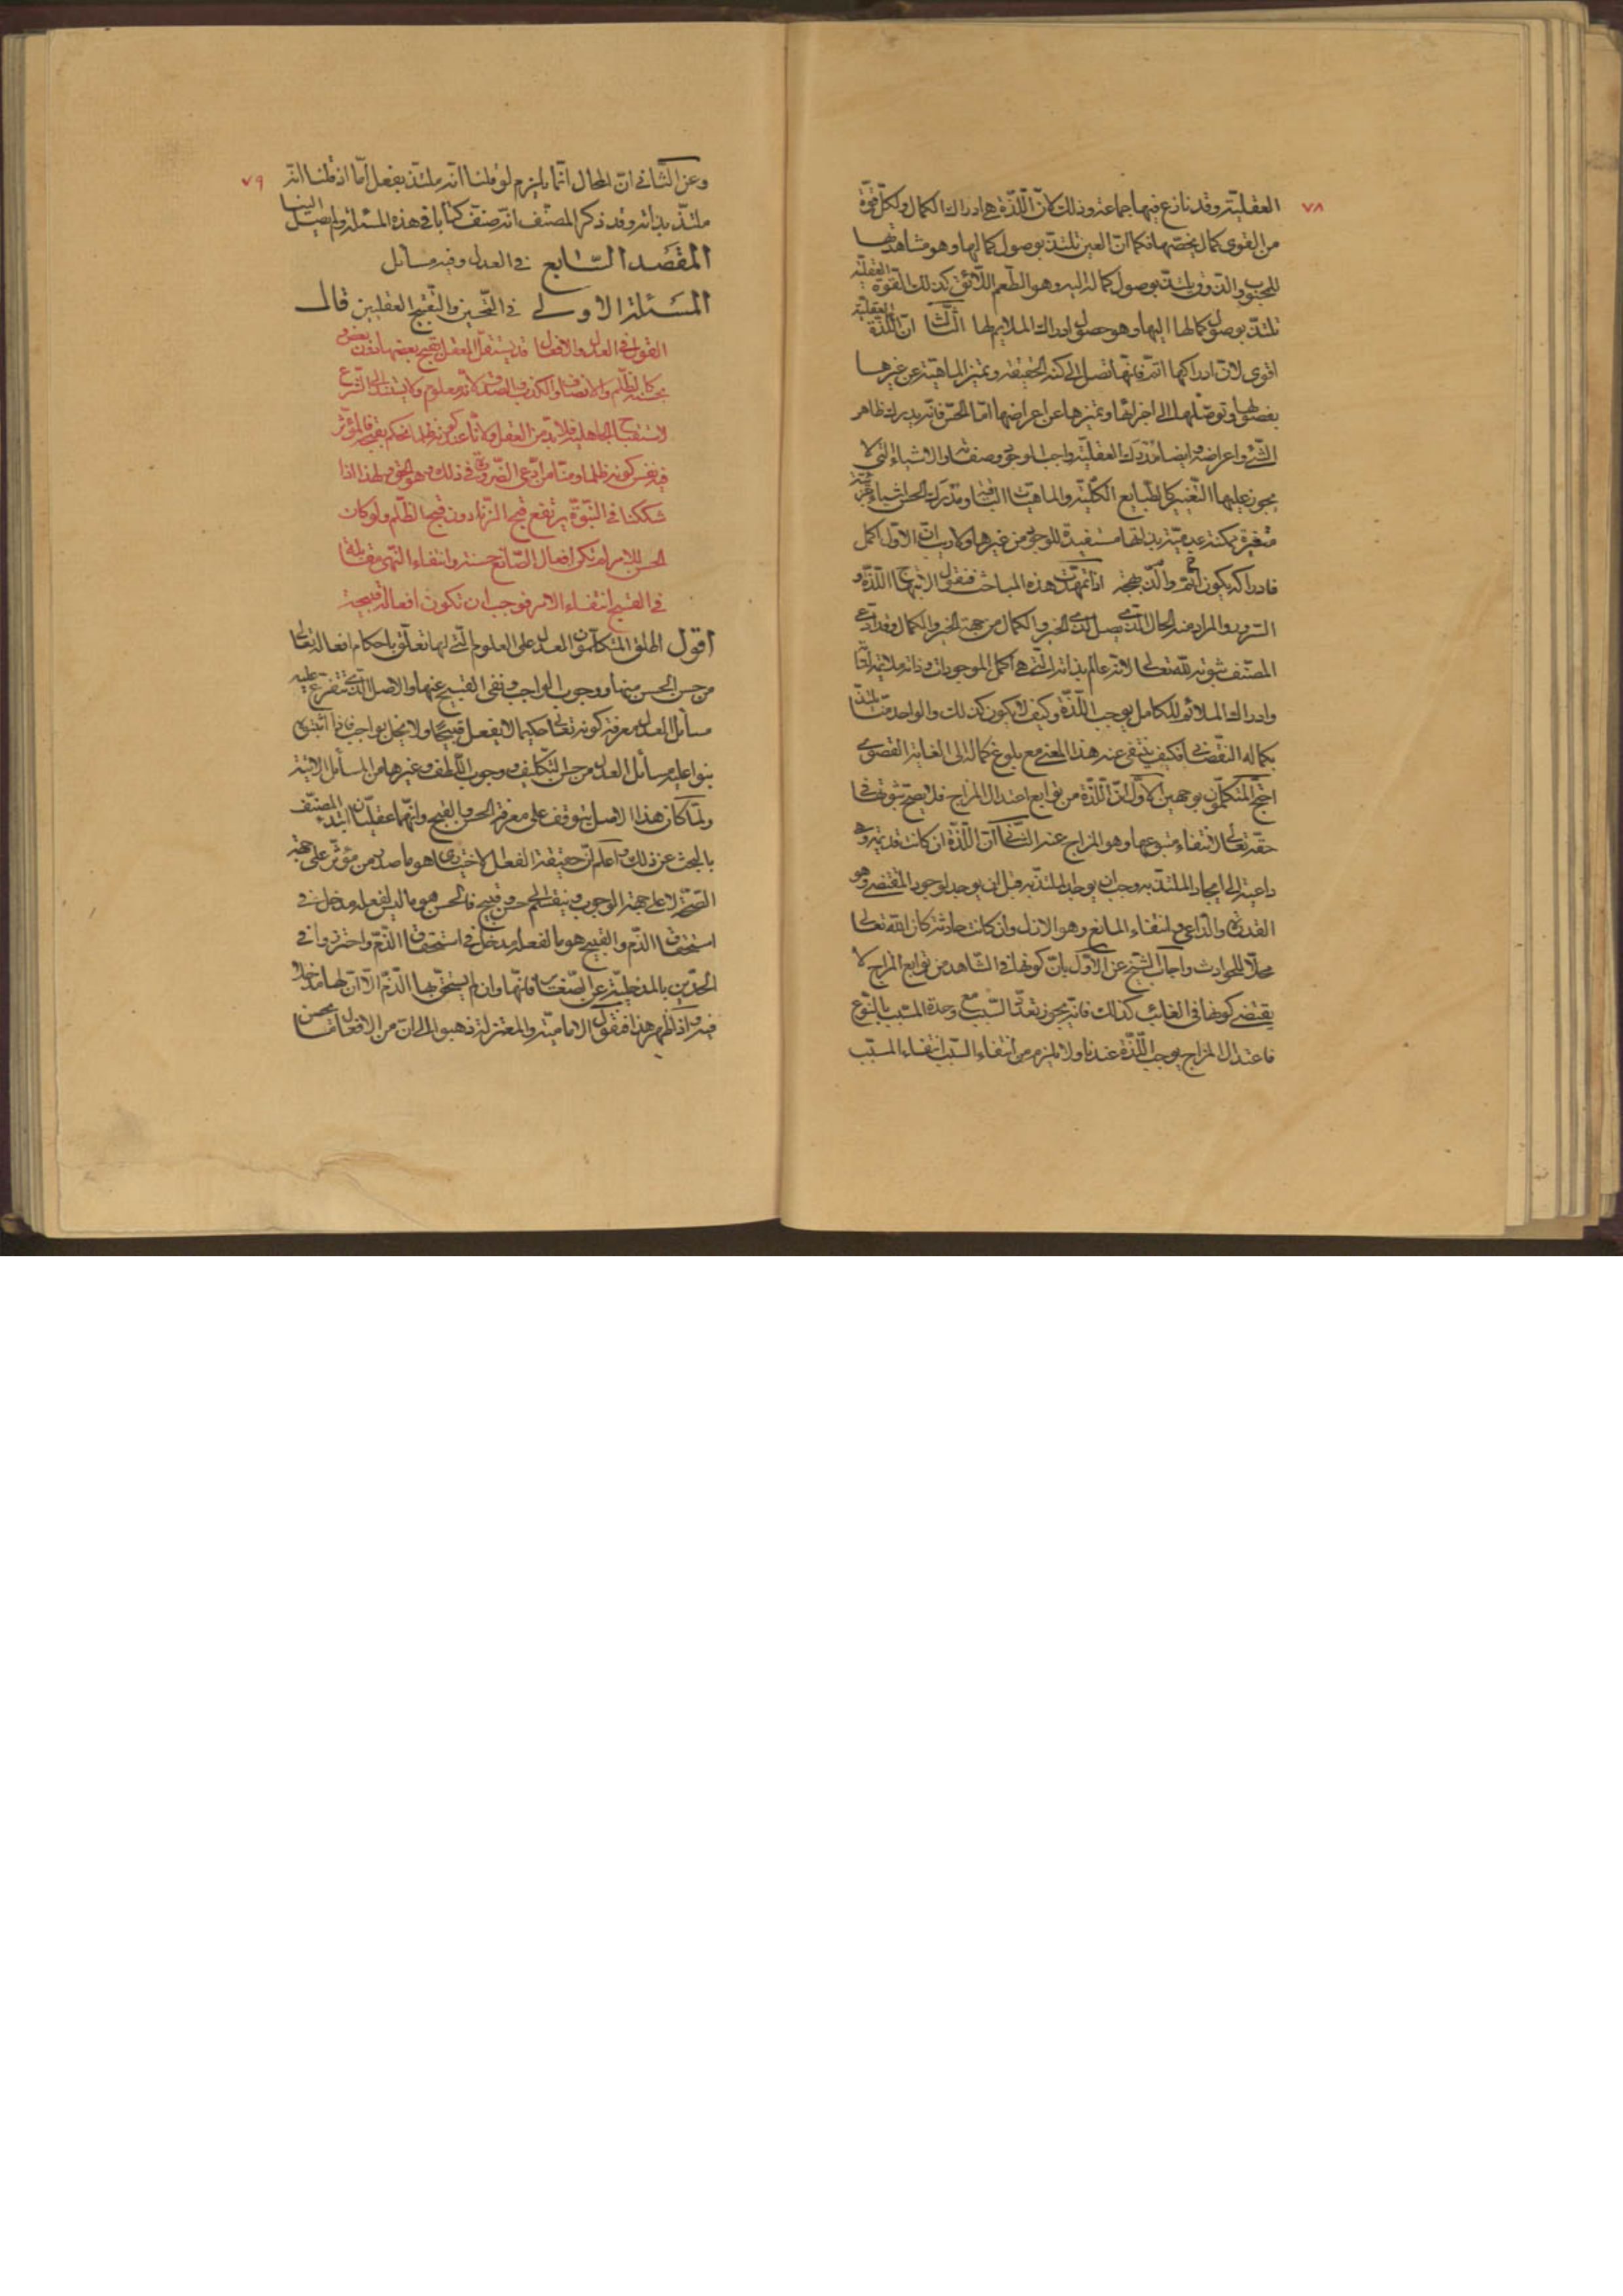 ٧٨
العقلية وقد نازع فيها جماعة وذلك لانّ اللّذة هي ادراك الكمال ولكلّ قوّة
من القوى كمال يخصّها فكما انّ العين تلتذّ بوصول كمالها وهو مشاهدتها
للمحبوب والذوق يلتذّ بوصول كماله اليه وهو الطّعم اللّائق كذلك القوّة العقليّة
تلتذّ بوصول كمالها اليها وهو حصول ادراك الملايم لها الثالث انّ اللّذة العقلية
اقوى لانّ ادراكها اتمّ فانّها تصل الى كنه الحقيقة وتميز الماهيّة عن غيرها
بفصولها وتوصّلها الى اجزائها وتميزها عن اعراضها امّا الحسّ فانّه يدرك ظاهر
الشّئ واعراضه وايضا مدرك العقليّة واجب الوجود وصفاته والاشياء الّتي لا
يجوز عليها التّغيير كالطبايع الكلّية والماهيّات الثابتة ومدرك الحسّ اشياء جزئيّة
متغيّرة ممكنة عدميّة بذاتها مستفيدة للوجود من غيرها ولا ريب انّ الاوّل اكمل
فادراكه يكون اتمّ والذّ بهجة اذا تمهّدت هذه المباحث فنقول الابتهاج اللّذة و
السّرور والمراد منه الحال الّتي تحصل لذي الخير والكمال من جهة الخير والكمال وقد ادّعى
المصنّف ثبوته للّه تعالى لانّه عالم بذاته الّتي هي اكمل الموجودات وذاته ملائمة لذاته
وادراك الملائم الكامل يوجب اللّذة وكيف لا يكون كذلك والواحد منّا يلتذّ
بكماله النّقصاني فكيف ينتفي عنه هذا المعنى مع بلوغ كماله الى الغاية القصوى
احتجّ المتكلّمون بوجهين الاوّل انّ اللّذة من توابع اعتدال المزاج فلا يصحّ ثبوتها في
حقّه تعالى لانتفاء متبوعها وهو المزاج عنه الثّاني انّ اللّذة ان كانت قديمة وهي
داعية الى ايجاد الملتذّ به وجب ان يوجد الملتذّ به قبل ان يوجد لوجود المقتضي وهو
القدرة والدّاعي وانتفاء المانع وهو الازل وان كانت حادثة كان اللّه تعالى
محلّا للحوادث واجاب الشّيخ عن الاوّل بانّ كونها في الشّاهد من توابع المزاج لا
يقتضي كونها في الغائب كذلك فانّه يجوز تعدّد السّبب مع وحدة المسبّب بالنّوع
فاعتدال المزاج يوجب اللّذة عندنا ولا يلزم من انتفاء السّبب انتفاء المسبّب
٧٩
وعن الثّاني انّ المحال انّما يلزم لو قلنا انّه ملتذّ بفعل امّا اذ قلنا انّه
ملتذّ بذاته وقد ذكر المصنّف انّه صنّف كتابا في هذه المسئلة ولم يصل الينا
المقصد السّابع في العدل وفيه مسائل
المسئلة الاولى في التّحسين والتّقبيح العقليين قال
القول في العدل والافعال قد يستقلّ العقل بقبح بعضها دون بعض و
بحسنه كالظّلم والانصاف والكذب والصدق لانّه معلوم ولا يستند الى الشّرع
لاستقباح الجاهلية فلا بدّ من العقل ولانّا عند كونه ظلما نحكم بقبحه فالمؤثّر
فيه نفس كونه ظلما ومنّا من ادّعى الضّرورة في ذلك وهو الحق ولهذا اذا
شككنا في النّبوّة يرتفع قبح الزّنا دون قبح الظّلم ولو كان
الحسن للامر لم تكن افعال الصّانع حسنة وانتفاء النّهي مقابلة
في القبيح انتفاء الامر فوجب ان تكون افعاله قبيحة
اقول اطلق المتكلّمون العدل على العلوم الّتي لها تعلّق باحكام افعاله تعالى
من حسن الحسن منها ووجوب الواجب ونفي القبيح عنها والاصل الّذي تتفرّع عليه
مسائل العدل معرفة كونه تعالى حكيما لا يفعل قبيحا ولا يخلّ بواجب فاذا اثبتوه
بنوا عليه مسائل العدل من حسن التّكليف ووجوب اللّطف وغيرها من المسائل الاتية
ولمّا كان هذا الاصل يتوقف على معرفة الحسن والقبيح وانّهما عقليّان ابتدء المصنّف
بالبحث عن ذلك واعلم انّ حقيقة الفعل الاختياري هو ما صدر من مؤثّر على جهة
الصّحة لا على جهة الوجوب وينقسم الى حسن وقبيح فالحسن هو ما ليس لفعله مدخل في
استحقاق الذّم والقبيح هو ما لفعله مدخل في استحقاق الذّمّ واحترزوا في
الحدّين بالمدخلية عن الصّغائر فانّها وان لم يستحقّ بها الذّمّ الّا انّ لها مدخلا
فيه واذا ظهر هذا فنقول الامامية والمعتزلة ذهبوا الى انّ من الافعال ما